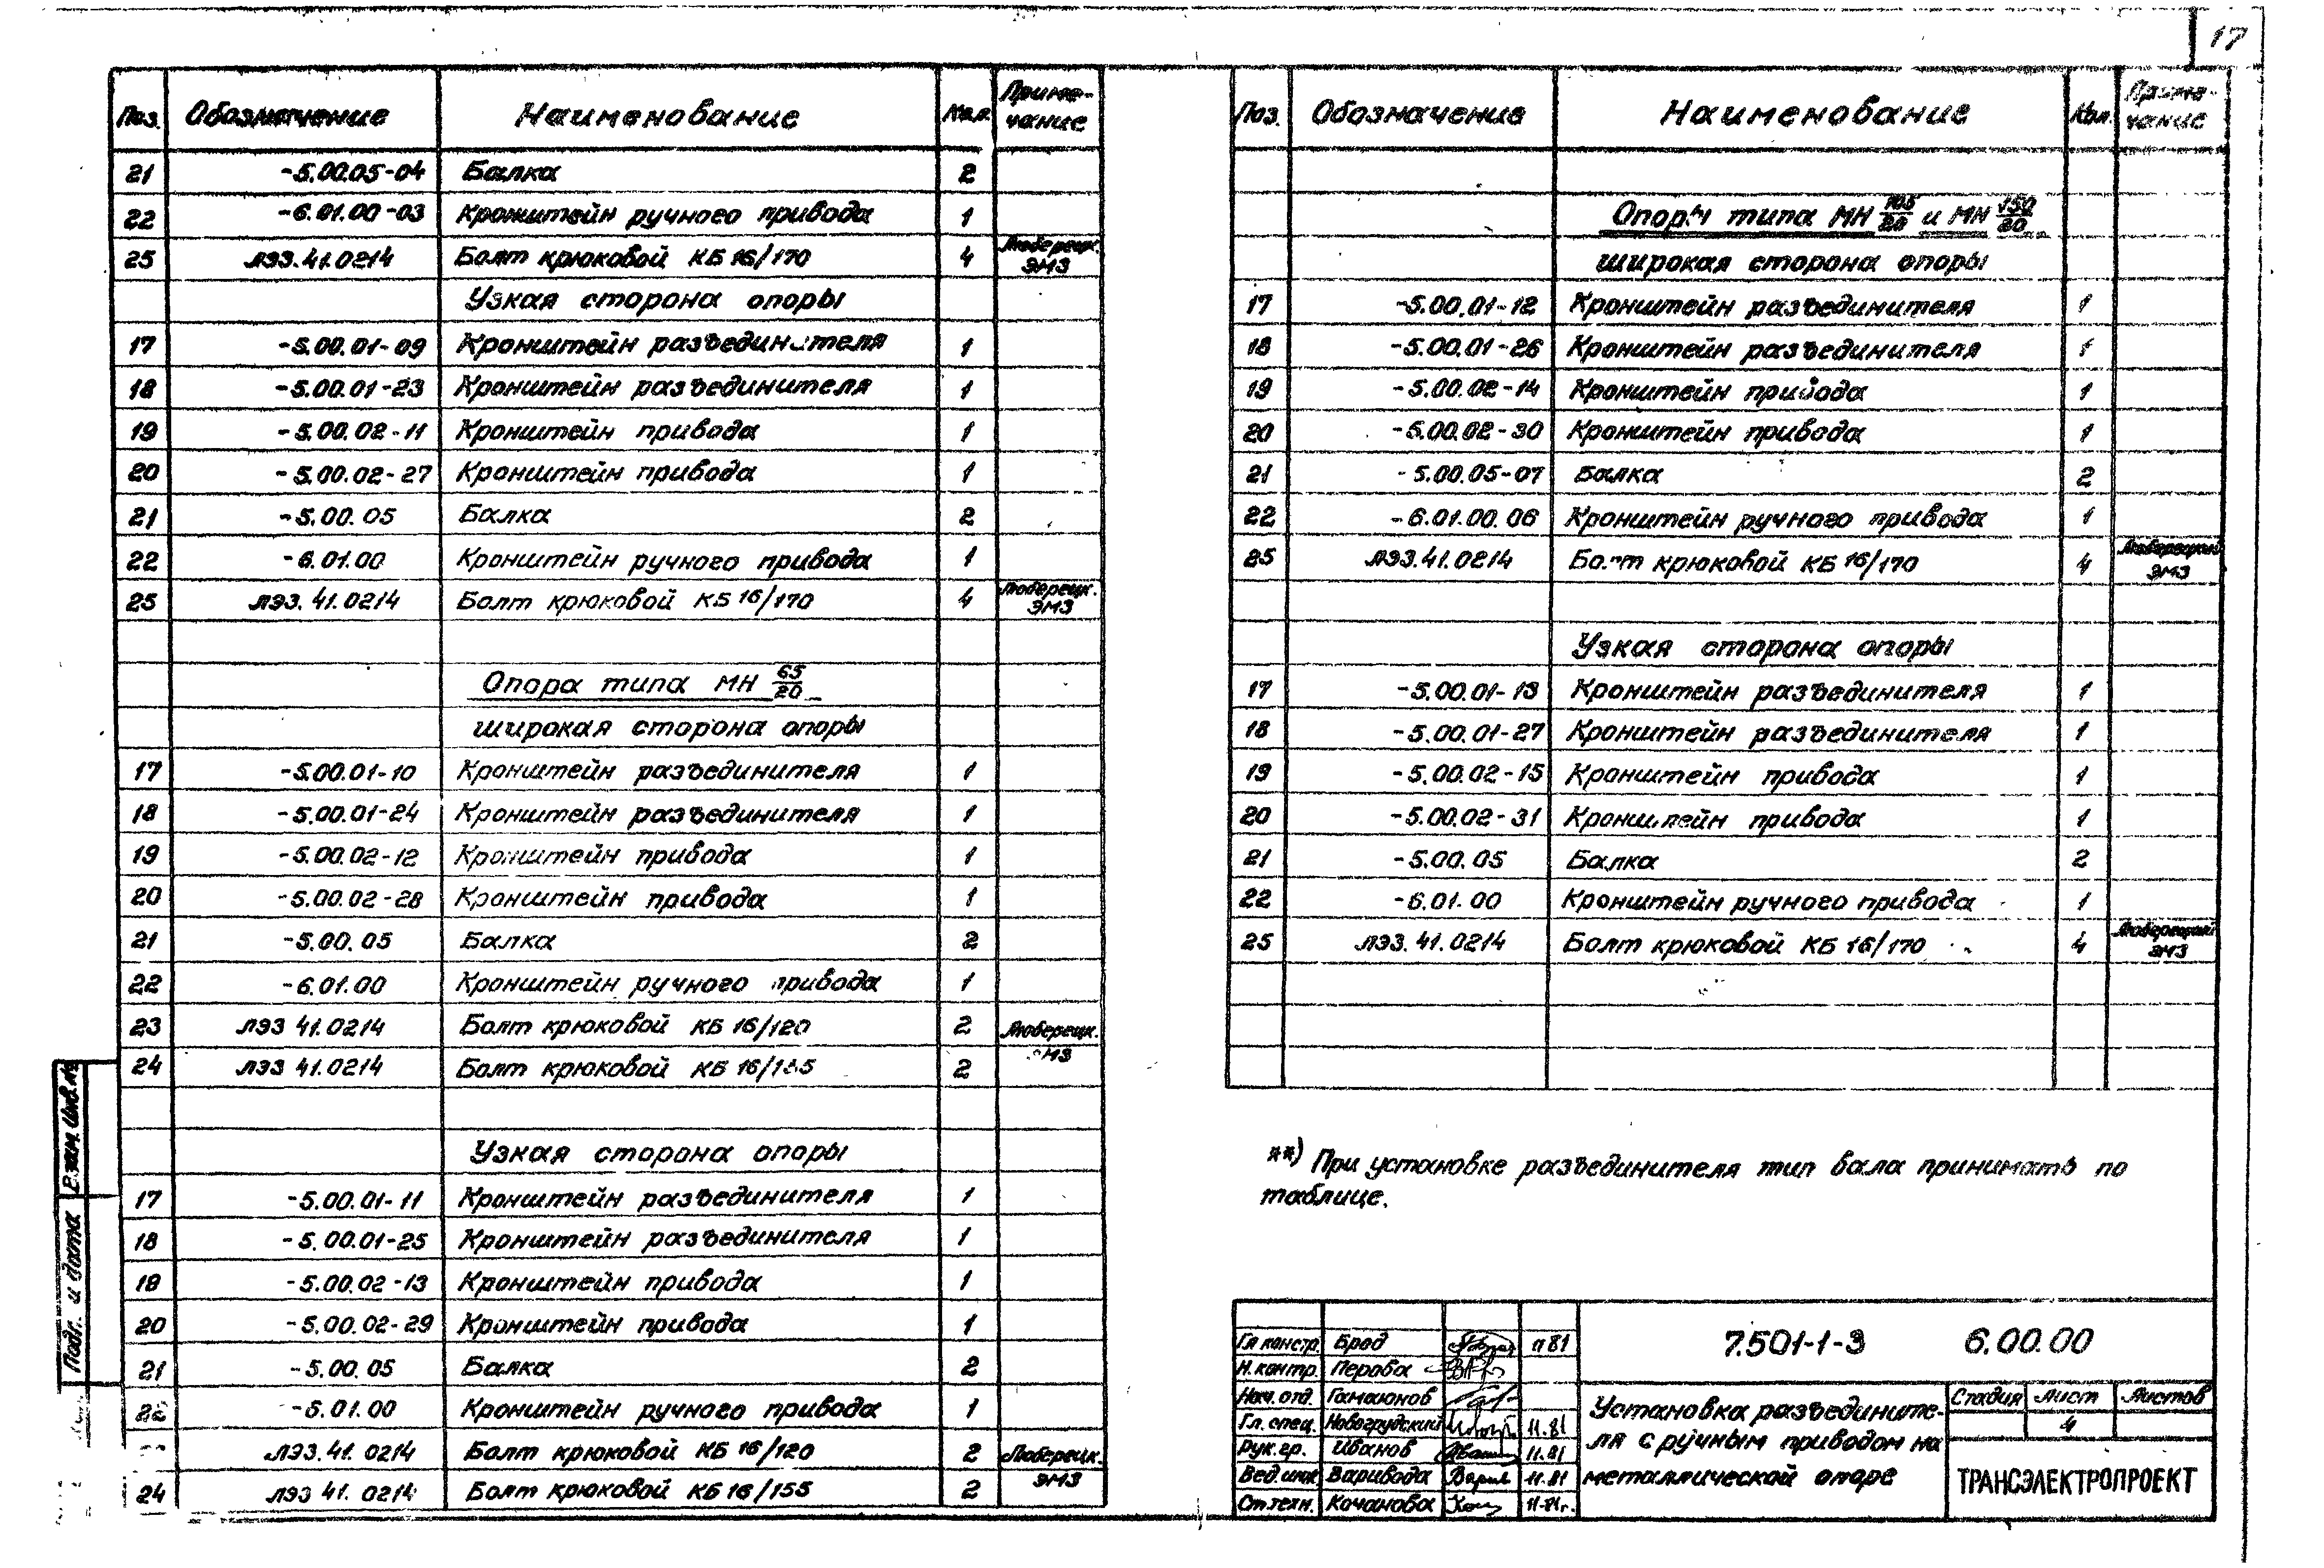 17
Поз. Обозначение Наименование Кол. Примечание
21 -5.00.05-04 Балка 2
22 -6.01.00-03 Кронштейн ручного привода 1
25 ЛЭЗ.41.0214 Болт крюковой КБ 16/170 4 Люберецк. ЭМЗ
Узкая сторона опоры
17 -5.00.01-09 Кронштейн разъединителя 1
18 -5.00.01-23 Кронштейн разъединителя 1
19 -5.00.02-11 Кронштейн привода 1
20 -5.00.02-27 Кронштейн привода 1
21 -5.00.05 Балка 2
22 -6.01.00 Кронштейн ручного привода 1
25 ЛЭЗ.41.0214 Болт крюковой КБ 16/170 4 Люберецк. ЭМЗ
Опора типа МН 65/20
широкая сторона опоры
17 -5.00.01-10 Кронштейн разъединителя 1
18 -5.00.01-24 Кронштейн разъединителя 1
19 -5.00.02-12 Кронштейн привода 1
20 -5.00.02-28 Кронштейн привода 1
21 -5.00.05 Балка 2
22 -6.01.00 Кронштейн ручного привода 1
23 ЛЭЗ 41.0214 Болт крюковой КБ 16/120 2 Люберецк.
24 ЛЭЗ 41.0214 Болт крюковой КБ 16/155 2 ЭМЗ
Узкая сторона опоры
17 -5.00.01-11 Кронштейн разъединителя 1
18 -5.00.01-25 Кронштейн разъединителя 1
19 -5.00.02-13 Кронштейн привода 1
20 -5.00.02-29 Кронштейн привода 1
21 -5.00.05 Балка 2
22 -6.01.00 Кронштейн ручного привода 1
ЛЭЗ.41.0214 Болт крюковой КБ 16/120 2 Люберецк.
24 ЛЭЗ 41.0214 Болт крюковой КБ 16/155 2 ЭМЗ
Взам. Инв. №
Подп. и дата
Поз. Обозначение Наименование Кол. Примечание
Опоры типа МН 105/20 и МН 150/20
широкая сторона опоры
17 -5.00.01-12 Кронштейн разъединителя 1
18 -5.00.01-26 Кронштейн разъединителя 1
19 -5.00.02-14 Кронштейн привода 1
20 -5.00.02-30 Кронштейн привода 1
21 -5.00.05-07 Балка 2
22 -6.01.00.06 Кронштейн ручного привода 1
25 ЛЭЗ.41.0214 Болт крюковой КБ 16/170 4 Люберецкий ЭМЗ
Узкая сторона опоры
17 -5.00.01-13 Кронштейн разъединителя 1
18 -5.00.01-27 Кронштейн разъединителя 1
19 -5.00.02-15 Кронштейн привода 1
20 -5.00.02-31 Кронштейн привода 1
21 -5.00.05 Балка 2
22 -6.01.00 Кронштейн ручного привода 1
25 ЛЭЗ.41.0214 Болт крюковой КБ 16/170 4 Люберецкий ЭМЗ
**) При установке разъединителя тип вала принимать по
таблице.
Гл констр. Брод 11 81
Н.контр. Перова
Нач.отд. Гамаюнов
Гл. спец. Новогрудский 11.81
Рук.гр. Иванов 11.81
Вед.инж Варивода 11.81
Ст.техн. Кочанова 11-81г.
7.501-1-3 6.00.00
Установка разъедините-
ля с ручным приводом на
металлической опоре
Стадия Лист Листов
4
ТРАНСЭЛЕКТРОПРОЕКТ